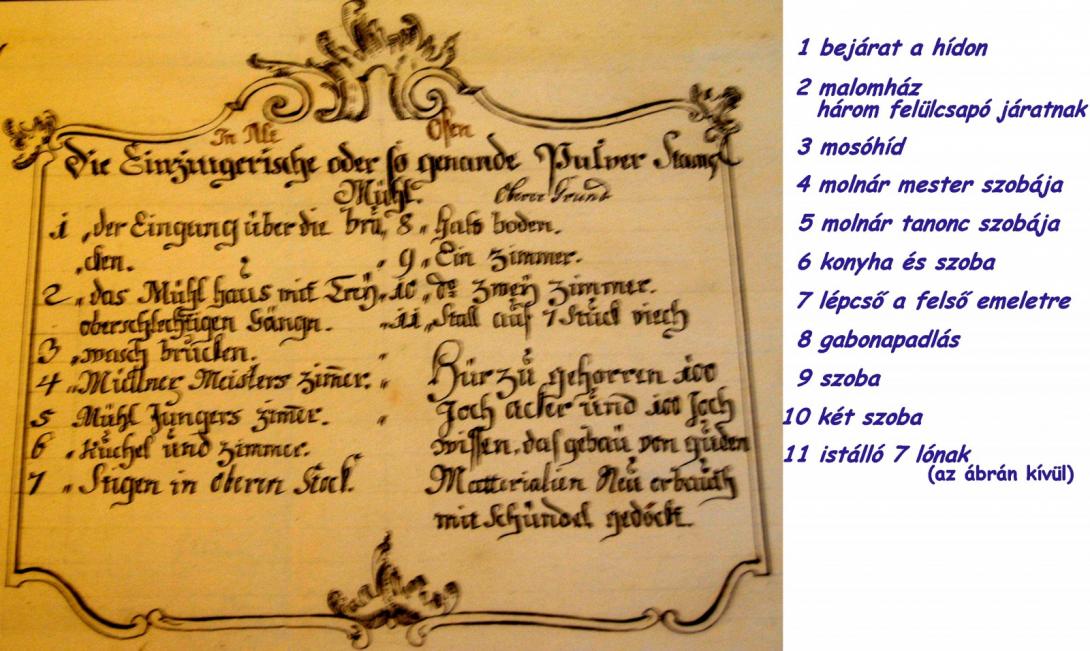 In Alt Ofen
Die Einzingerische oder so genande Pulver Stamp
Mühl. Oberer Grund
1 „ der Eingung über die brü,
„ cken.
2 „ das Mühl haus mit Treÿ
oberschlechtigen Gängn.
3 „ wasch brücken.
4 „ Müllner Meisters zimer.
5 Mühl Jungers zimer.
6 „ Kuchel und zimmer.
7 „ Stigen in oberen Stock.
8 „ boden.
„ 9 „ Ein zimmer.
„ 10 „ do zweÿ zimmer.
„ 11 „ Stall auf 7 Stück viech
Hür zu gehorren 100
Joch acker und 100 Joch
wissen, das gebaü von guden
Matterialien Neü erbauth
mit Schündel gedöckt.
1 bejárat a hídon
2 malomház
három felülcsapó járatnak
3 mosóhíd
4 molnár mester szobája
5 molnár tanonc szobája
6 konyha és szoba
7 lépcső a felső emeletre
8 gabonapadlás
9 szoba
10 két szoba
11 istálló 7 lónak
(az ábrán kívül)